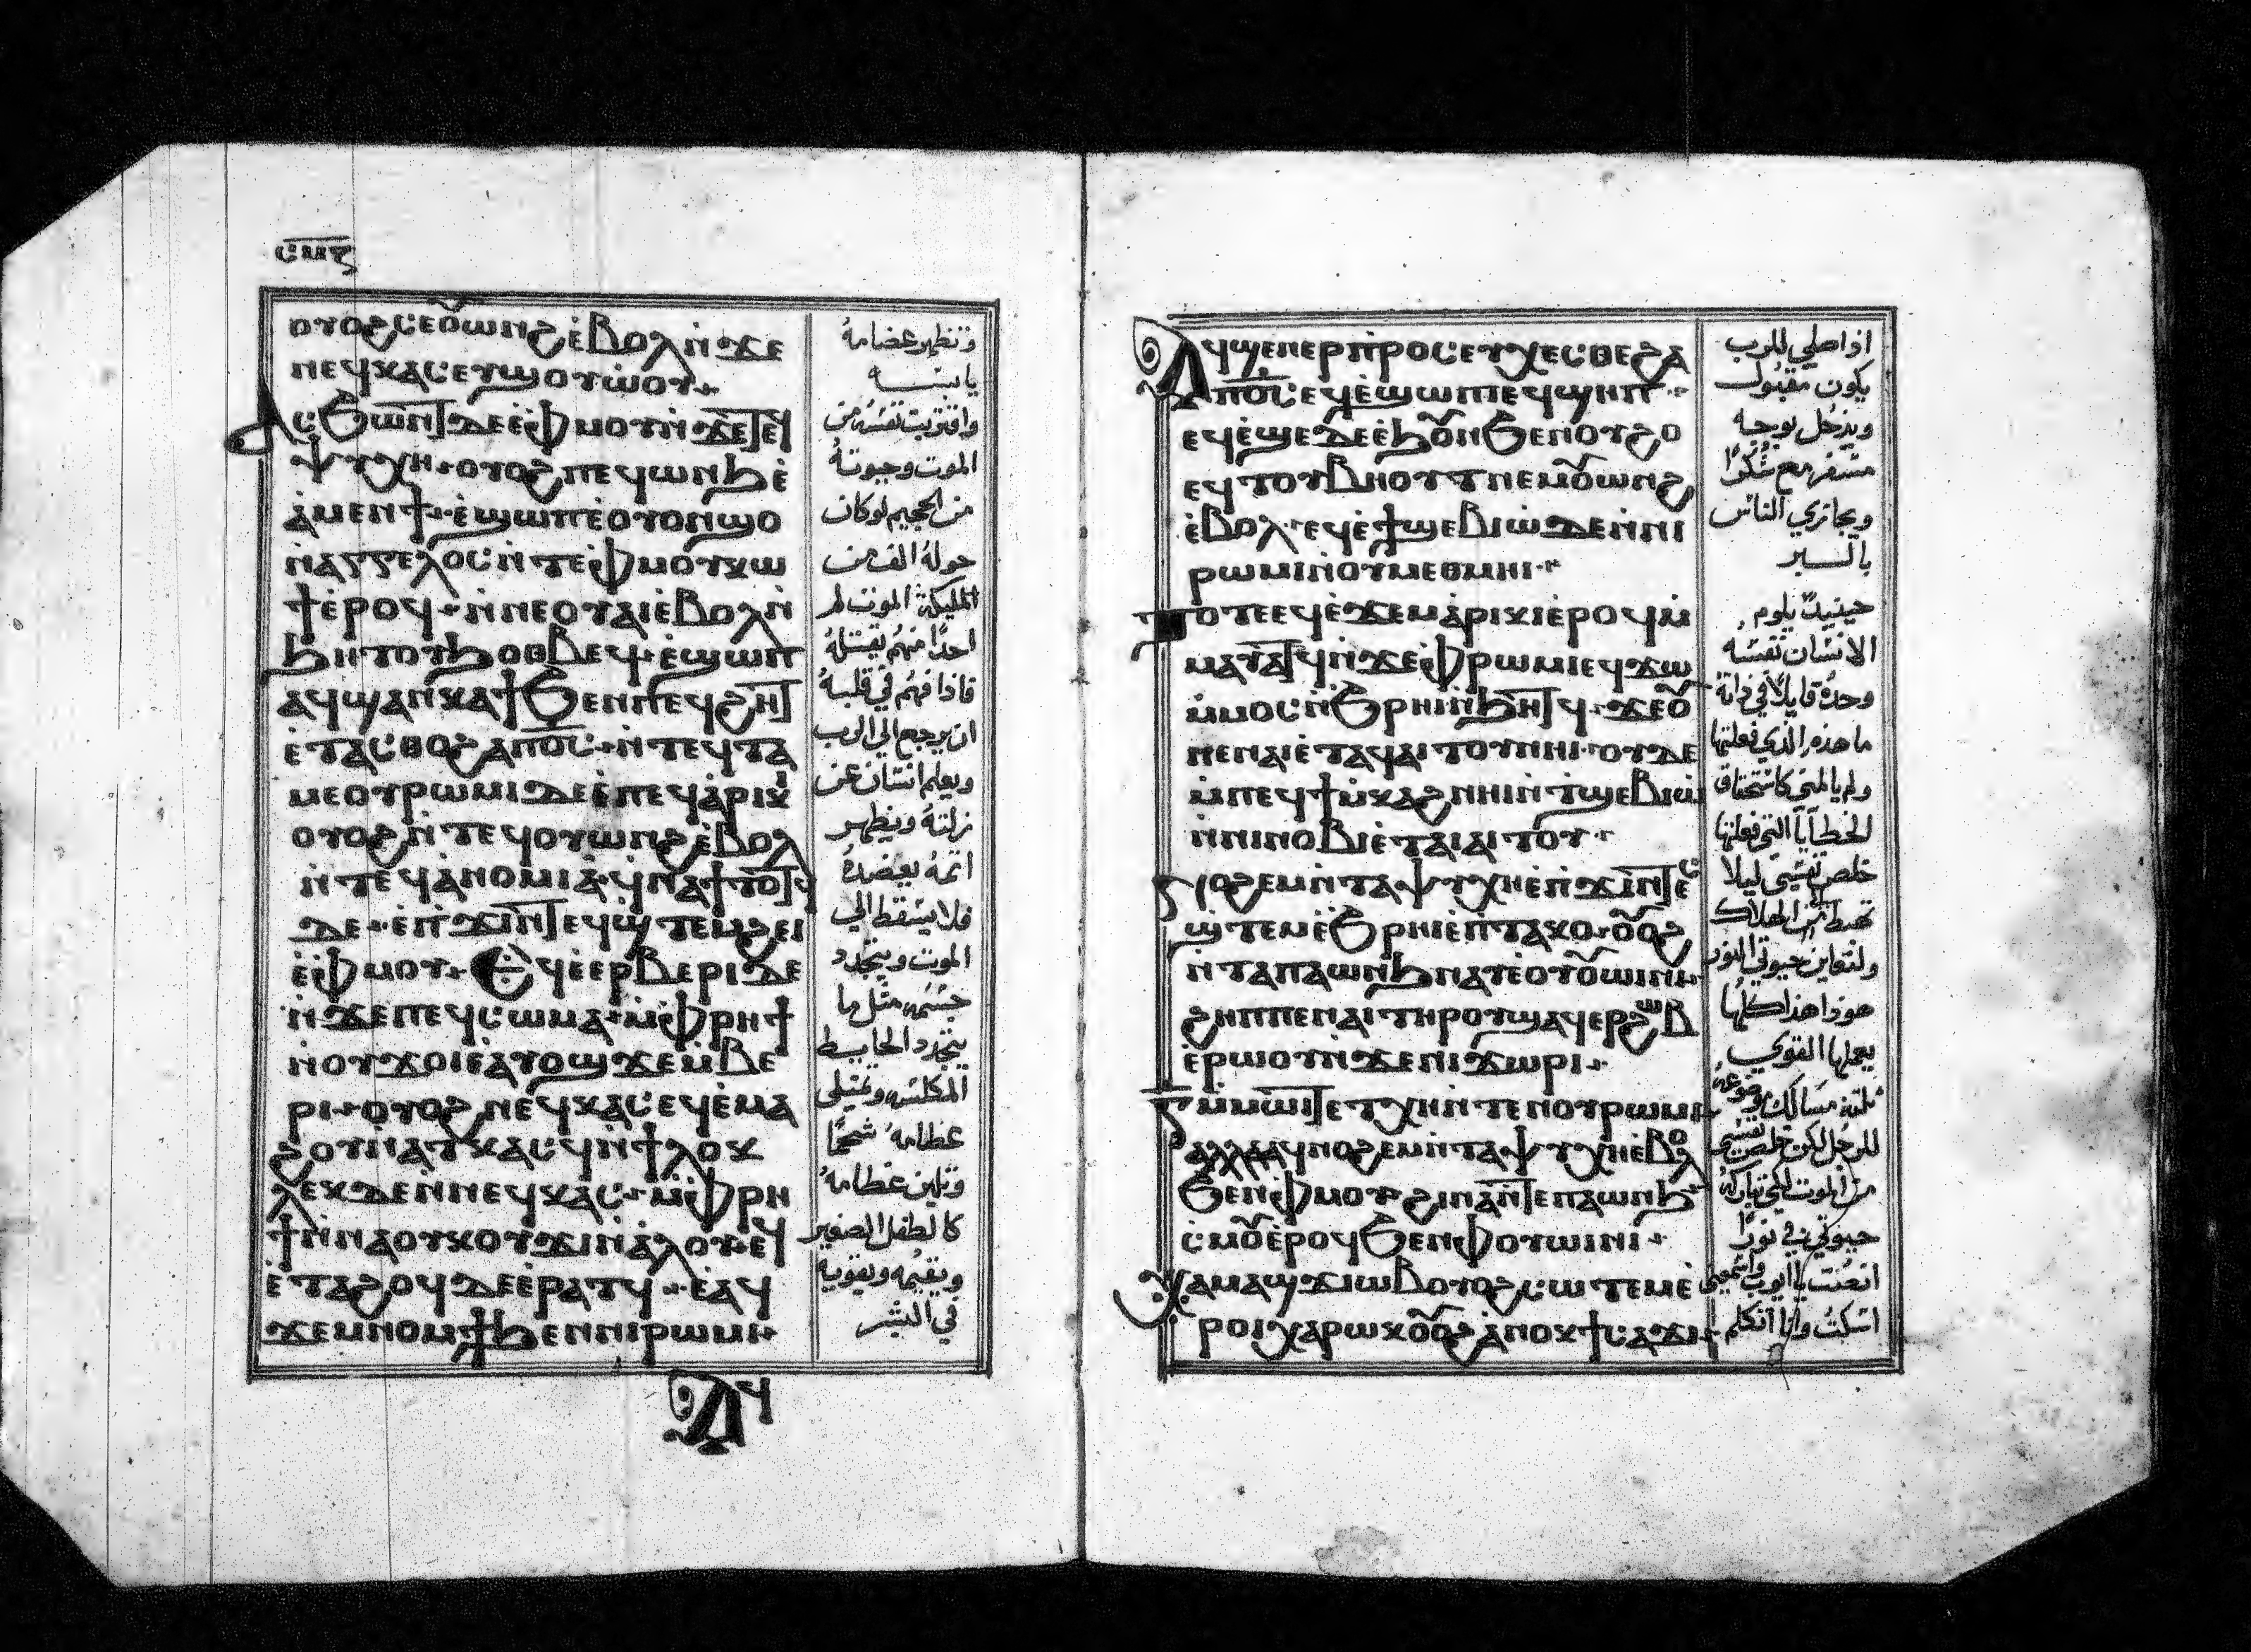 ⲥⲙⲋ
ⲟⲩⲟϩ ⲥⲉⲟ̅ⲱⲛϩ ⲉ̀ⲃⲟⲗ ⲛ̀ϫⲉ
ⲛⲉϥⲕⲁⲥ ⲉⲧϣⲟⲩⲱⲟⲩ
ⲁⲥϧⲱⲛⲧ ⲇⲉ ⲉ̀ⲫⲙⲟⲩ ⲛ̀ϫⲉⲧⲉϥ
ⲯⲩⲭⲏ ⲟⲩⲟϩ ⲡⲉϥⲱⲛϧ ⲉ̀
ⲁ̀ⲙⲉⲛϯ ⲉ̀ϣⲱⲡ ⲉ̀ⲟⲩⲟⲛ ϣⲟ
ⲛ̀ⲁⲅⲅⲉⲗⲟⲥ ⲛ̀ⲧⲉ ⲫ̀ⲙⲟⲩ ⲕⲱ
ϯ ⲉ̀ⲣⲟϥ ⲛ̀ⲛⲉ ⲟⲩⲁⲓ ⲉ̀ⲃⲟⲗ ⲛ̀
ϧⲏⲧⲟⲩ ϧⲟⲑⲃⲉϥ ⲉ̀ϣⲱⲡ
ⲁϥϣⲁⲛⲕⲁϯ ϧⲉⲛ ⲡⲉϥϩⲏⲧ
ⲉ̀ⲧⲁⲥⲑⲟ ϩⲁ ⲡⲟ̅ⲥ̅ ⲛ̀ⲧⲉϥⲧⲁ
ⲙⲉ ⲟⲩⲣⲱⲙⲓ ⲇⲉ ⲉ̀ⲡⲉϥⲁ̀ⲣⲓⲕⲓ
ⲟⲩⲟϩ ⲛ̀ⲧⲉϥⲟⲩⲱⲛϩ ⲉ̀ⲃⲟⲗ
ⲛ̀ⲧⲉϥⲁ̀ⲛⲟⲙⲓⲁ ϥⲛⲁϯⲧⲟⲧϥ
ⲇⲉ ⲉ̀ⲡ̀ϫⲓⲛⲧⲉϥϣ̀ⲧⲉⲙϩⲉⲓ
ⲉ̀ⲫⲙⲟⲩ ⲉϥⲉ̀ⲉⲣⲃⲉⲣⲓ ⲇⲉ
ⲛ̀ϫⲉ ⲡⲉϥⲥⲱⲙⲁ ⲙ̀ⲫⲣⲏϯ
ⲛ̀ⲟⲩϫⲟⲓ ⲉ̀ⲁⲩⲟϣϫⲉⲙ ⲃⲉ
ⲣⲓ ⲟⲩⲟϩ ⲛⲉϥⲕⲁⲥ ⲉϥⲉ̀ⲙⲁ
ϩⲟⲩ ⲛ̀ⲁⲧⲕⲁⲥ ϥⲛϯⲗⲟⲕ
ⲗⲉⲕ ⲇⲉ ⲛ̀ⲛⲉϥⲕⲁⲥ ⲙ̀ⲫⲣⲏ
ϯ ⲛ̀ⲛⲁ ⲟⲩⲕⲟⲩϫⲓ ⲛ̀ⲁ̀ⲗⲟⲩ ⲉϥ
ⲉ̀ⲧⲁϩⲟϥ ⲇⲉ ⲉ̀ⲣⲁⲧϥ ⲉⲁϥ
ϫⲉⲙⲛⲟⲙϯ ϧⲉⲛ ⲛⲓⲣⲱⲙⲓ
ⲁϥ
وتظهر عضامهُ
يابسه
واقتربت نفسهُ من
الموت وحيوتهُ
من الجحيم لو كان
حوله الف من
المليكة الموت لم
احدًا منهم يقتلهُ
فاذا فهم في قلبهُ
ان يرجع الي الرب
ويعلم انسان عن
زلته ويظهر
اثمهُ يعضدهُ
فلا يسقط الي
الموت ويتجدد
جسمه مثل ما
يتجدد الحايط
المكلس وتمتلى
عظامهُ شحمًا
وتلين عظامهُ
كالطفل الصغير
ويقيمه ويقويه
في البشر
ⲁϥϣⲉⲛⲉⲣⲡ̀ⲣⲟⲥⲉⲩⲭⲉⲥⲑⲉ ϩⲁ
ⲡⲟ̅ⲥ̅ ⲉϥⲉ̀ϣⲱⲡ ⲉϥϣⲏⲡ
ⲉϥⲉ̀ϣⲉ ⲇⲉ ⲉ̀ϧⲟ̅ⲛ ϧⲉⲛ ⲟⲩϩⲟ
ⲉϥⲧⲟⲩⲃⲏⲟⲩⲧ ⲛⲉⲙ ⲟ̅ⲱⲛϩ
ⲉ̀ⲃⲟⲗ ⲉϥⲉ̀ϯϣⲉⲃⲓⲱ̀ ⲇⲉ ⲛ̀ⲛⲓ
ⲣⲱⲙⲓ ⲛ̀ⲟⲩⲙⲉⲑⲙⲏⲓ
ⲧⲟⲧⲉ ⲉϥⲉ̀ϫⲉⲙ ⲁ̀ⲣⲓⲕⲓ ⲉ̀ⲣⲟϥ ⲙ̀
ⲙⲁⲩⲁⲧϥ ⲛ̀ϫⲉ ⲫ̀ⲣⲱⲙⲓ ⲉϥϫⲱ
ⲙ̀ⲙⲟⲥ ⲛ̀ϧⲣⲏⲓ ⲛ̀ϧⲏⲧϥ ϫⲉ ⲟ̅
ⲛⲉ ⲛⲁⲓ ⲉ̀ⲧⲁϥⲁⲓⲧⲟⲩ ⲛⲏⲓ ⲟⲩⲇⲉ
ⲙ̀ⲡⲉϥϯⲙ̀ⲕⲁϩ ⲛⲏⲓ ⲛ̀ⲧϣⲉⲃⲓⲱ̀
ⲛ̀ⲛⲓⲛⲟⲃⲓ ⲉ̀ⲧⲁⲓⲁⲓⲧⲟⲩ
ⲛⲟϩⲉⲙ ⲛ̀ⲧⲁⲯⲩⲭⲏ ⲉ̀ⲡ̀ϫⲓⲛⲧⲉⲥ
ϣ̀ⲧⲉⲙⲉ̀ϧⲣⲏⲓ ⲉ̀ⲡⲧⲁⲕⲟ ⲟ̅ⲟϩ
ⲛ̀ⲧⲁⲡⲁⲱⲛϧ ⲛⲁⲩ ⲉ̀ⲟⲩⲟ̅ⲱⲓⲛⲓ
ϩⲏⲡⲡⲉ ⲛⲁⲓ ⲧⲏⲣⲟⲩ ϣⲁϥⲉⲣϩⲱⲃ
ⲉ̀ⲣⲱⲟⲩ ⲛ̀ϫⲉ ⲛⲓϫⲱⲣⲓ
ⲅ ⲙ̀ⲙⲱⲓⲧ ⲉⲧⲭⲏ ⲛ̀ⲧⲉⲛ ⲟⲩⲣⲱⲙⲓ
ⲁⲗⲗⲁ ⲁϥⲛⲟϩⲉⲙ ⲛ̀ⲧⲁⲯⲩⲭⲏ ⲉ̀ⲃⲟⲗ
ϧⲉⲛ ⲫⲙⲟⲩ ϩⲓⲛⲁ ⲛ̀ⲧⲉ ⲡⲁⲱⲛϧ
ⲥ̀ⲙⲟ̅ ⲉ̀ⲣⲟϥ ϧⲉⲛ ⲫⲟⲩⲱⲓⲛⲓ
ϭⲁⲙⲁϣϫ ⲓⲱⲃ ⲟⲩⲟϩ ⲥⲱⲧⲉⲙ ⲉ̀
ⲣⲟⲓ ⲭⲁⲣⲱⲕ ⲟ̅ⲟϩ ⲁⲛⲟⲕ ϯⲥⲁϫⲓ
اذا صلي للرب
يكون مقبول
ويدخل بوجه
مسفر مع شكرًا
ويجازي الناس
بالبر
حينيدٍ يلوم
الانسان نفسه
وحدهُ قايلًا في ذاتهُ
ما هذه الذي فعلتها
ولم يالمني كاستحقاق
الخطايا التي فعلتها
خلص نفسي ليلا
تهبط الى الهلاك
ولتعاين حيوتي النور
هوذا هذا كلها
يعملها القوي
ثلثة مسالك موضوعة
للرجل لكن خلص نفسي
من الموت لكي تباركه
حيوتي في نورًا
انصت يا ايوب واسمعني
اسكت وانا اتكلم